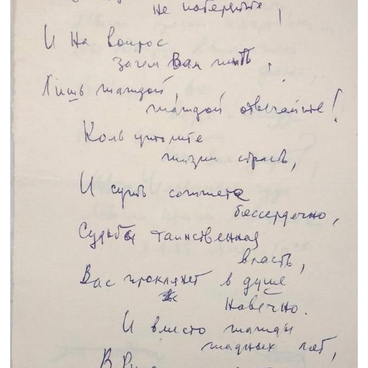 не
И на вопрос
зачем Вам пить,
Лишь жаждой,
жаждой отвечайте!
Коль утолите
жизни страсть,
И суть сомнете
бессердечно,
Судьбы таинственная
власть,
Вас проклянет в душе
навечно.
И вместо жажды
жадных лет,
В